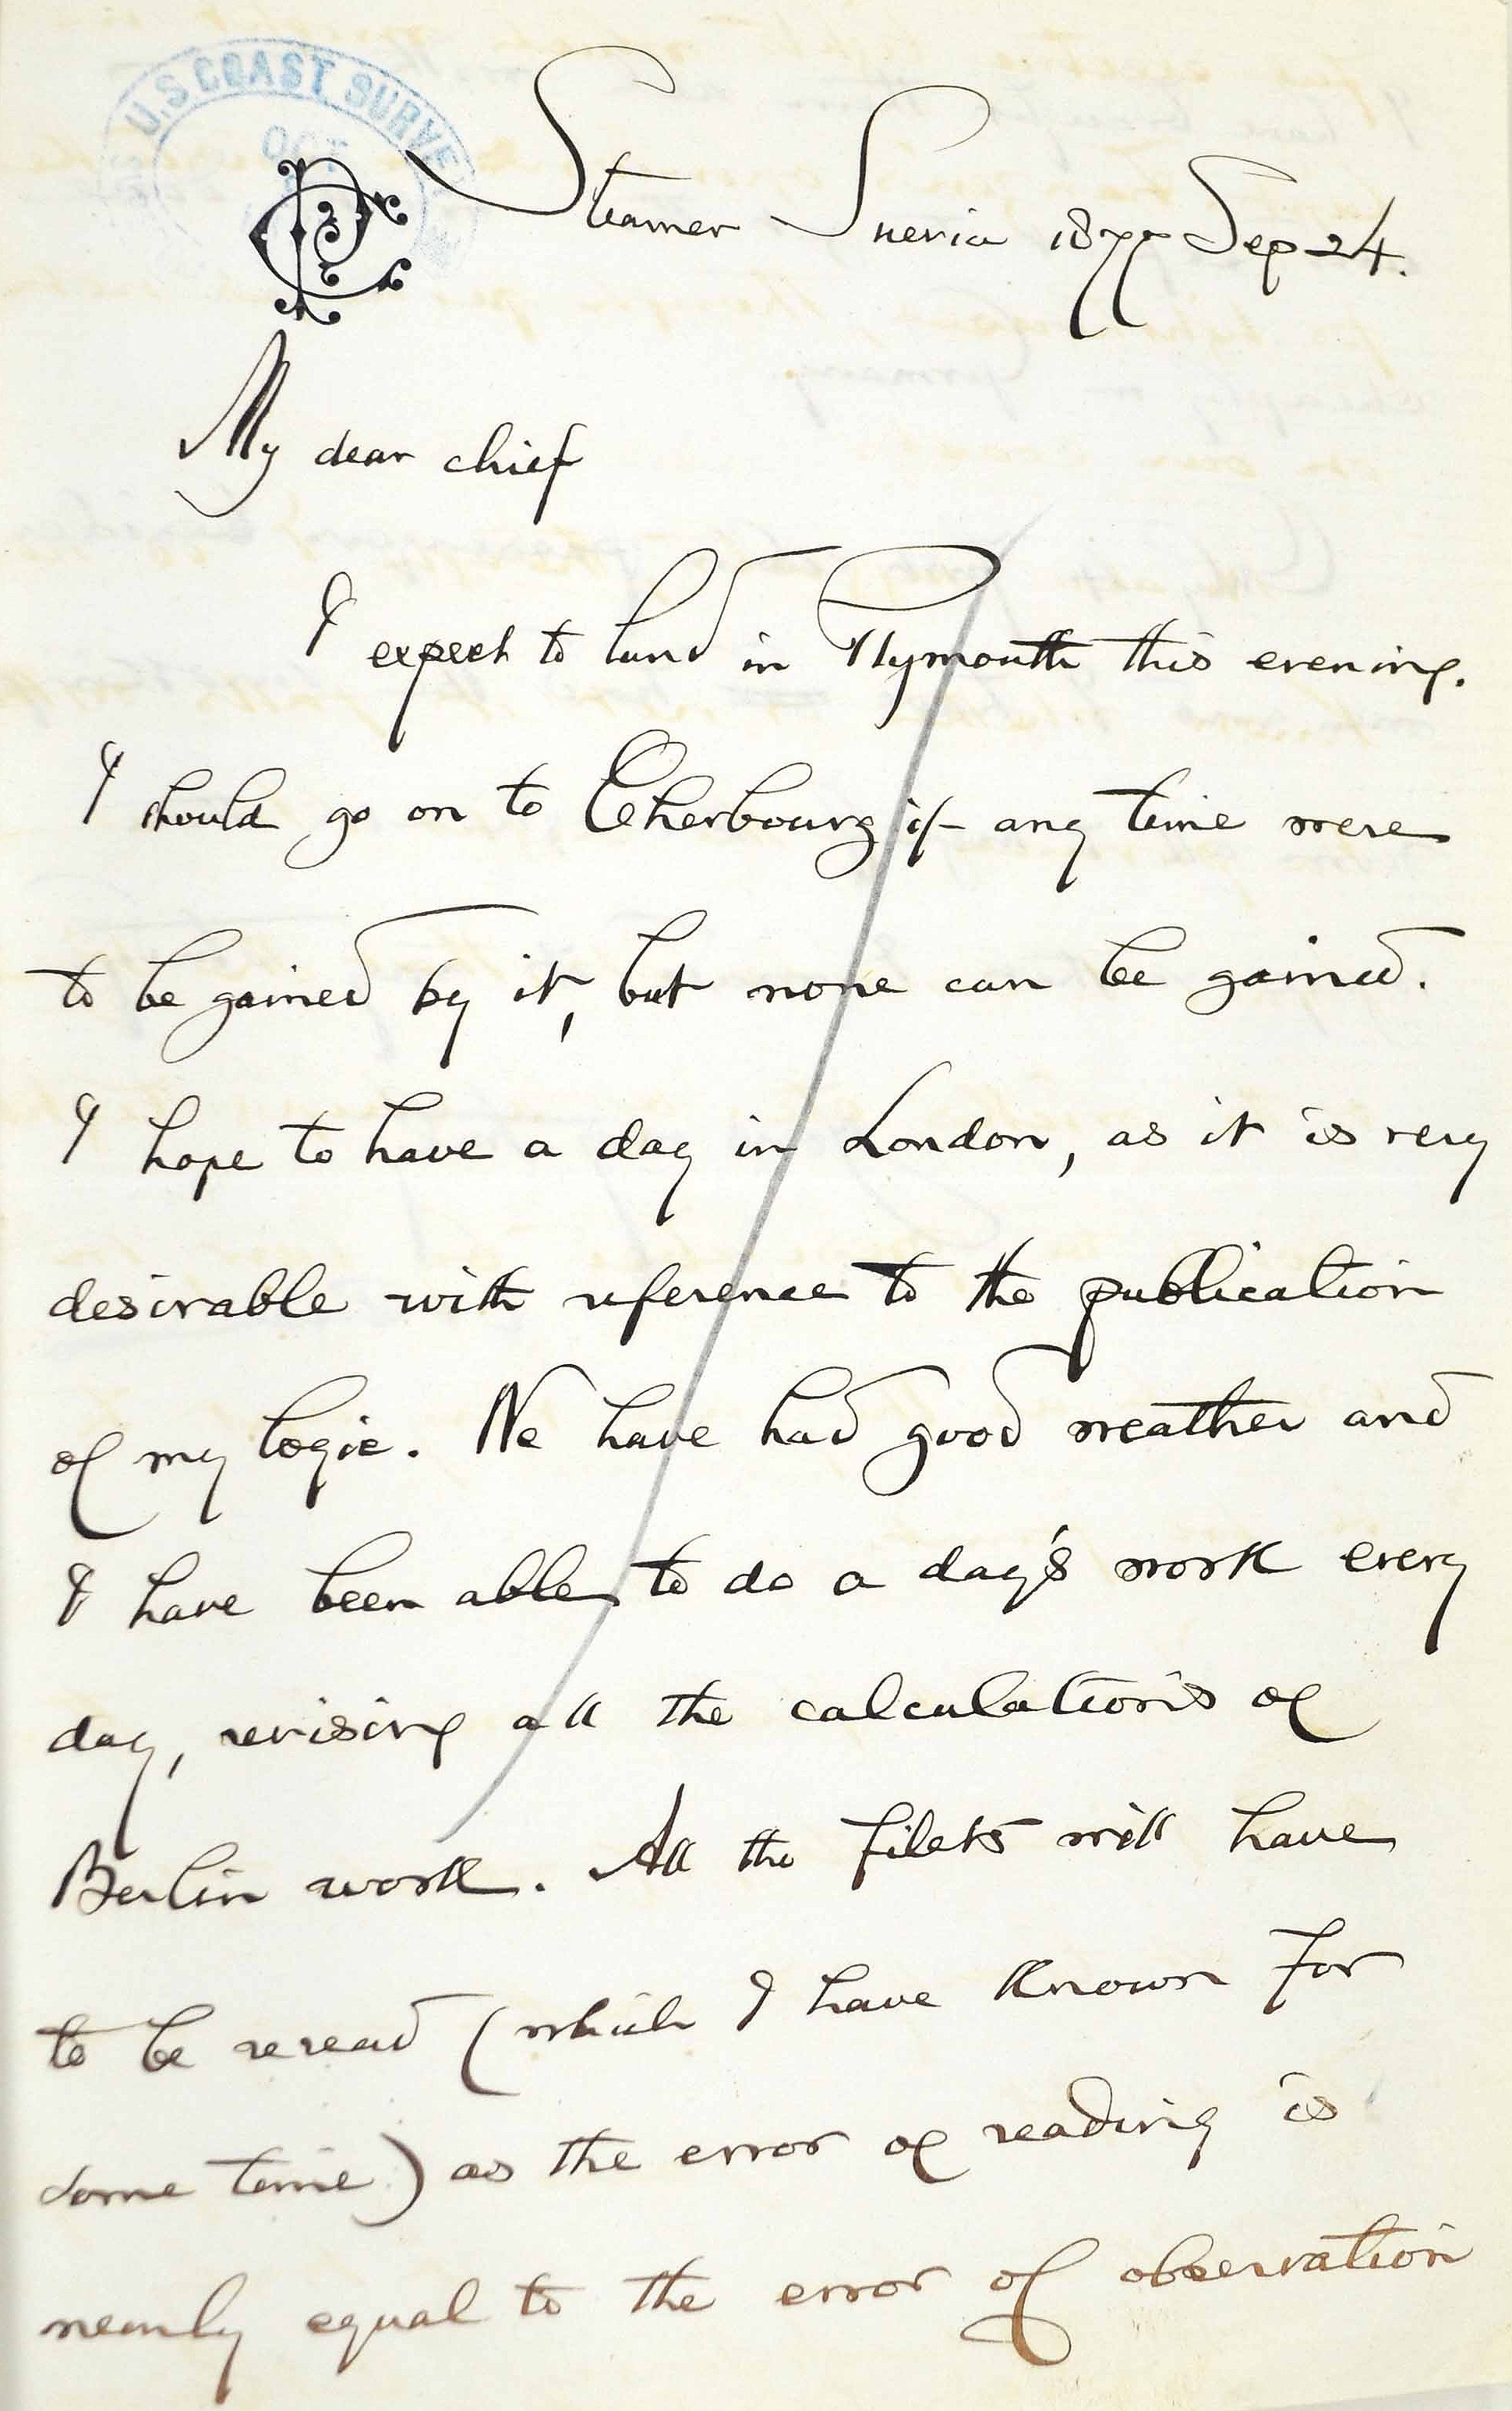 U.S COAST SURVEY
OCT
Steamer Sueria 1877 Sep 24.
My dear chief
I expect to land in Plymouth this evening.
I should go on to Cherbourg if any time were
to be gained by it, but none can be gained.
I hope to have a day in London, as it is very
desirable with reference to the publication
of my logic. We have had good weather and
I have been able to do a day's work every
day, revising all the calculations of
Berlin work. All the filets will have
to be reread (which I have known for
some time) as the error of reading is
nearly equal to the error of observation